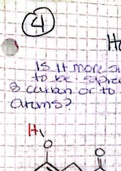 4
H
Is it more s
to be
3 carbon or to
atoms?
H
O
O